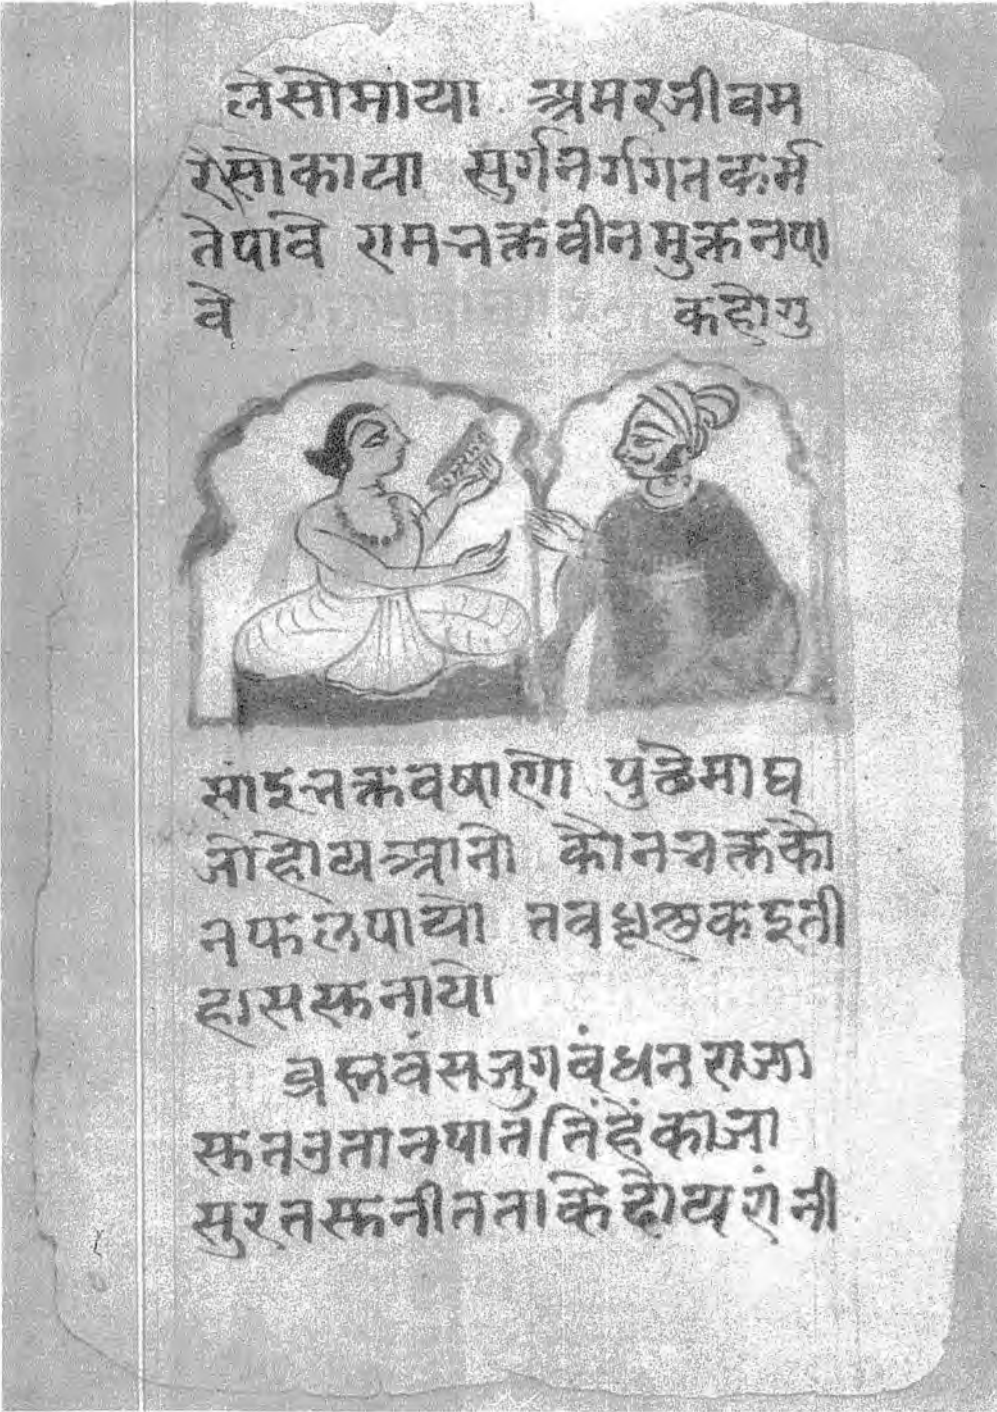 लेसोमाया अमरजीवम
रेसोकाया सुर्गनर्गगनकर्म
तेपावे रामन्नक्तवीनमुक्तनपा
वे कहोगु
सांइन्नक्तवषाणो पुछेमाघ
जोहोयअ्रानो कोनन्नक्तको
नफलपायो तवधूलुकइती
हाससुनायो
व्रह्मवंसजुगवंधनराजा
सुतनुतानपातनिंहेंकाजा
सुरतसुनीतताकेहोयरांनी